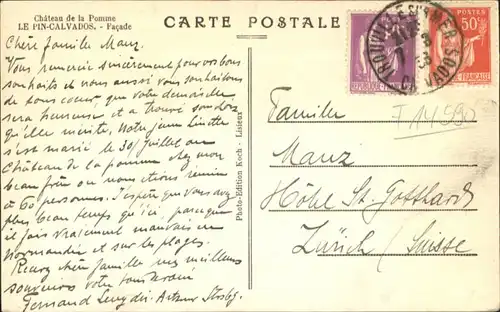 Château de la Pomme
LE PIN-CALVADOS. - Façade
CARTE POSTALE
Chère famille Manz.
Vous remercie sincèrement pour vos bons
souhaits et nous aussi vous souhaitons
de tout coeur, que votre demoiselle
sera heureuse et a trouvé
qu'elle mérite. Notre
s'est marié le 30 juillet au
Château de la pomme chez mon
beau frère ou nous étions réunis
à 60 personnes. J'espère que vous avez
plus beau temps qu'ici, parceque
il fais vraiement mauvais en
Normandie et sur les plages.
Recevez chère famille mes meilleurs
souvenirs votre tout dévoué
Fernand Levy
Photo-Edition Koch - Lisieux
TROUVILLE-SUR-MER
CALVADOS
50c
POSTES
REPUBLIQUE FRANÇAISE
Famille
Manz
Hôtel St. Gotthard
Zürich / Suisse